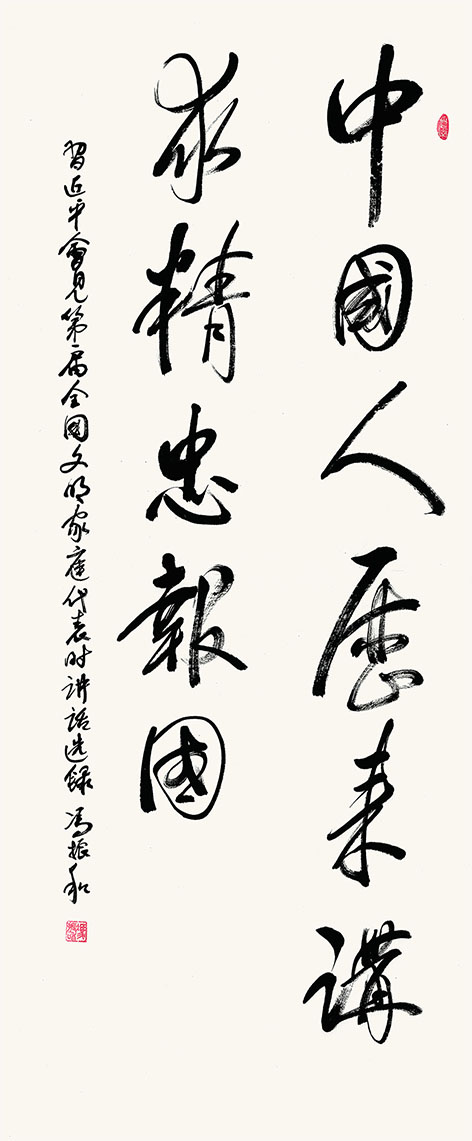 中國人歷来講
求精忠報國
習近平會見第一届全國文明家庭代表时讲話选録 馮振和